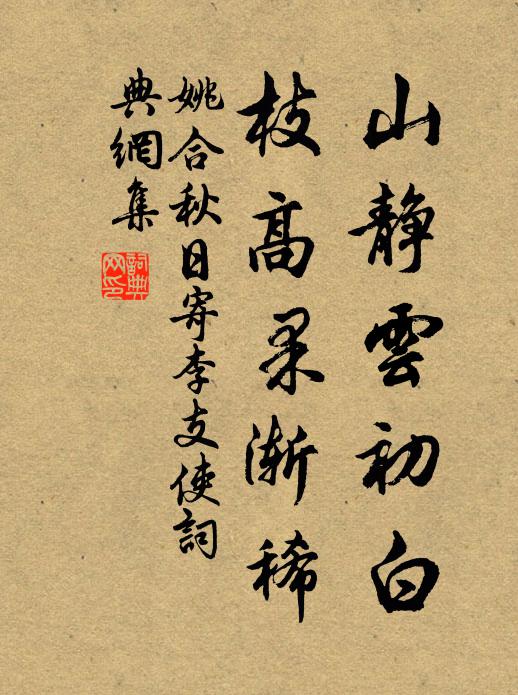 山靜雲初白
枝高果漸稀
姚合秋日寄李支使詞
典網集
詞典
网印